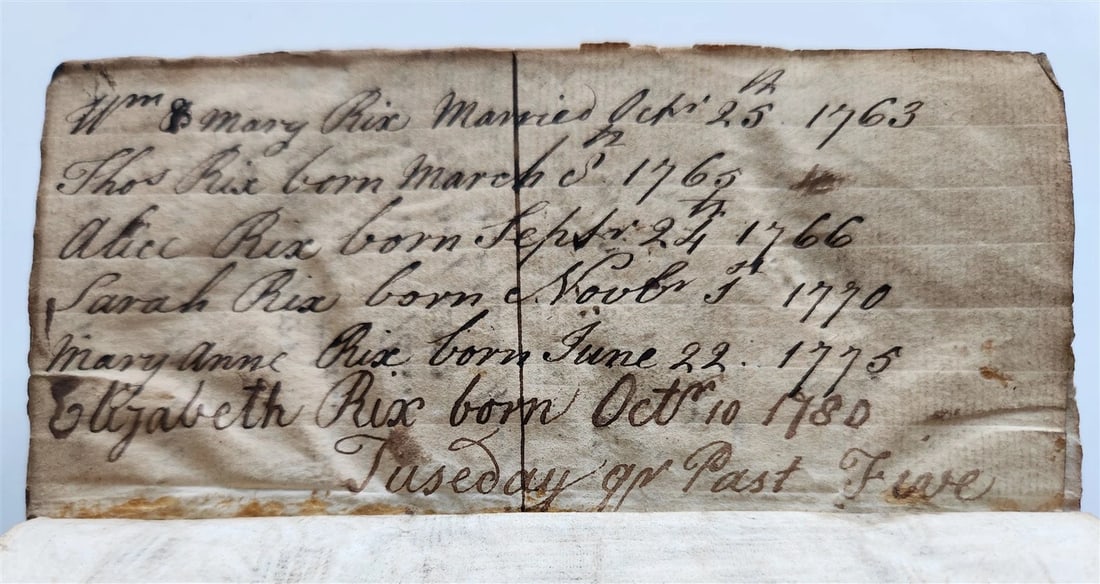 Wm & Mary Rix Married Octr 25th 1763
Thos Rix born March 8th 1765
Alice Rix born Septr 24th 1766
Sarah Rix born Novbr 1770
Mary Anne Rix born June 22. 1775
Elizabeth Rix born Octbr 10 1780
Tuseday qr Past Five